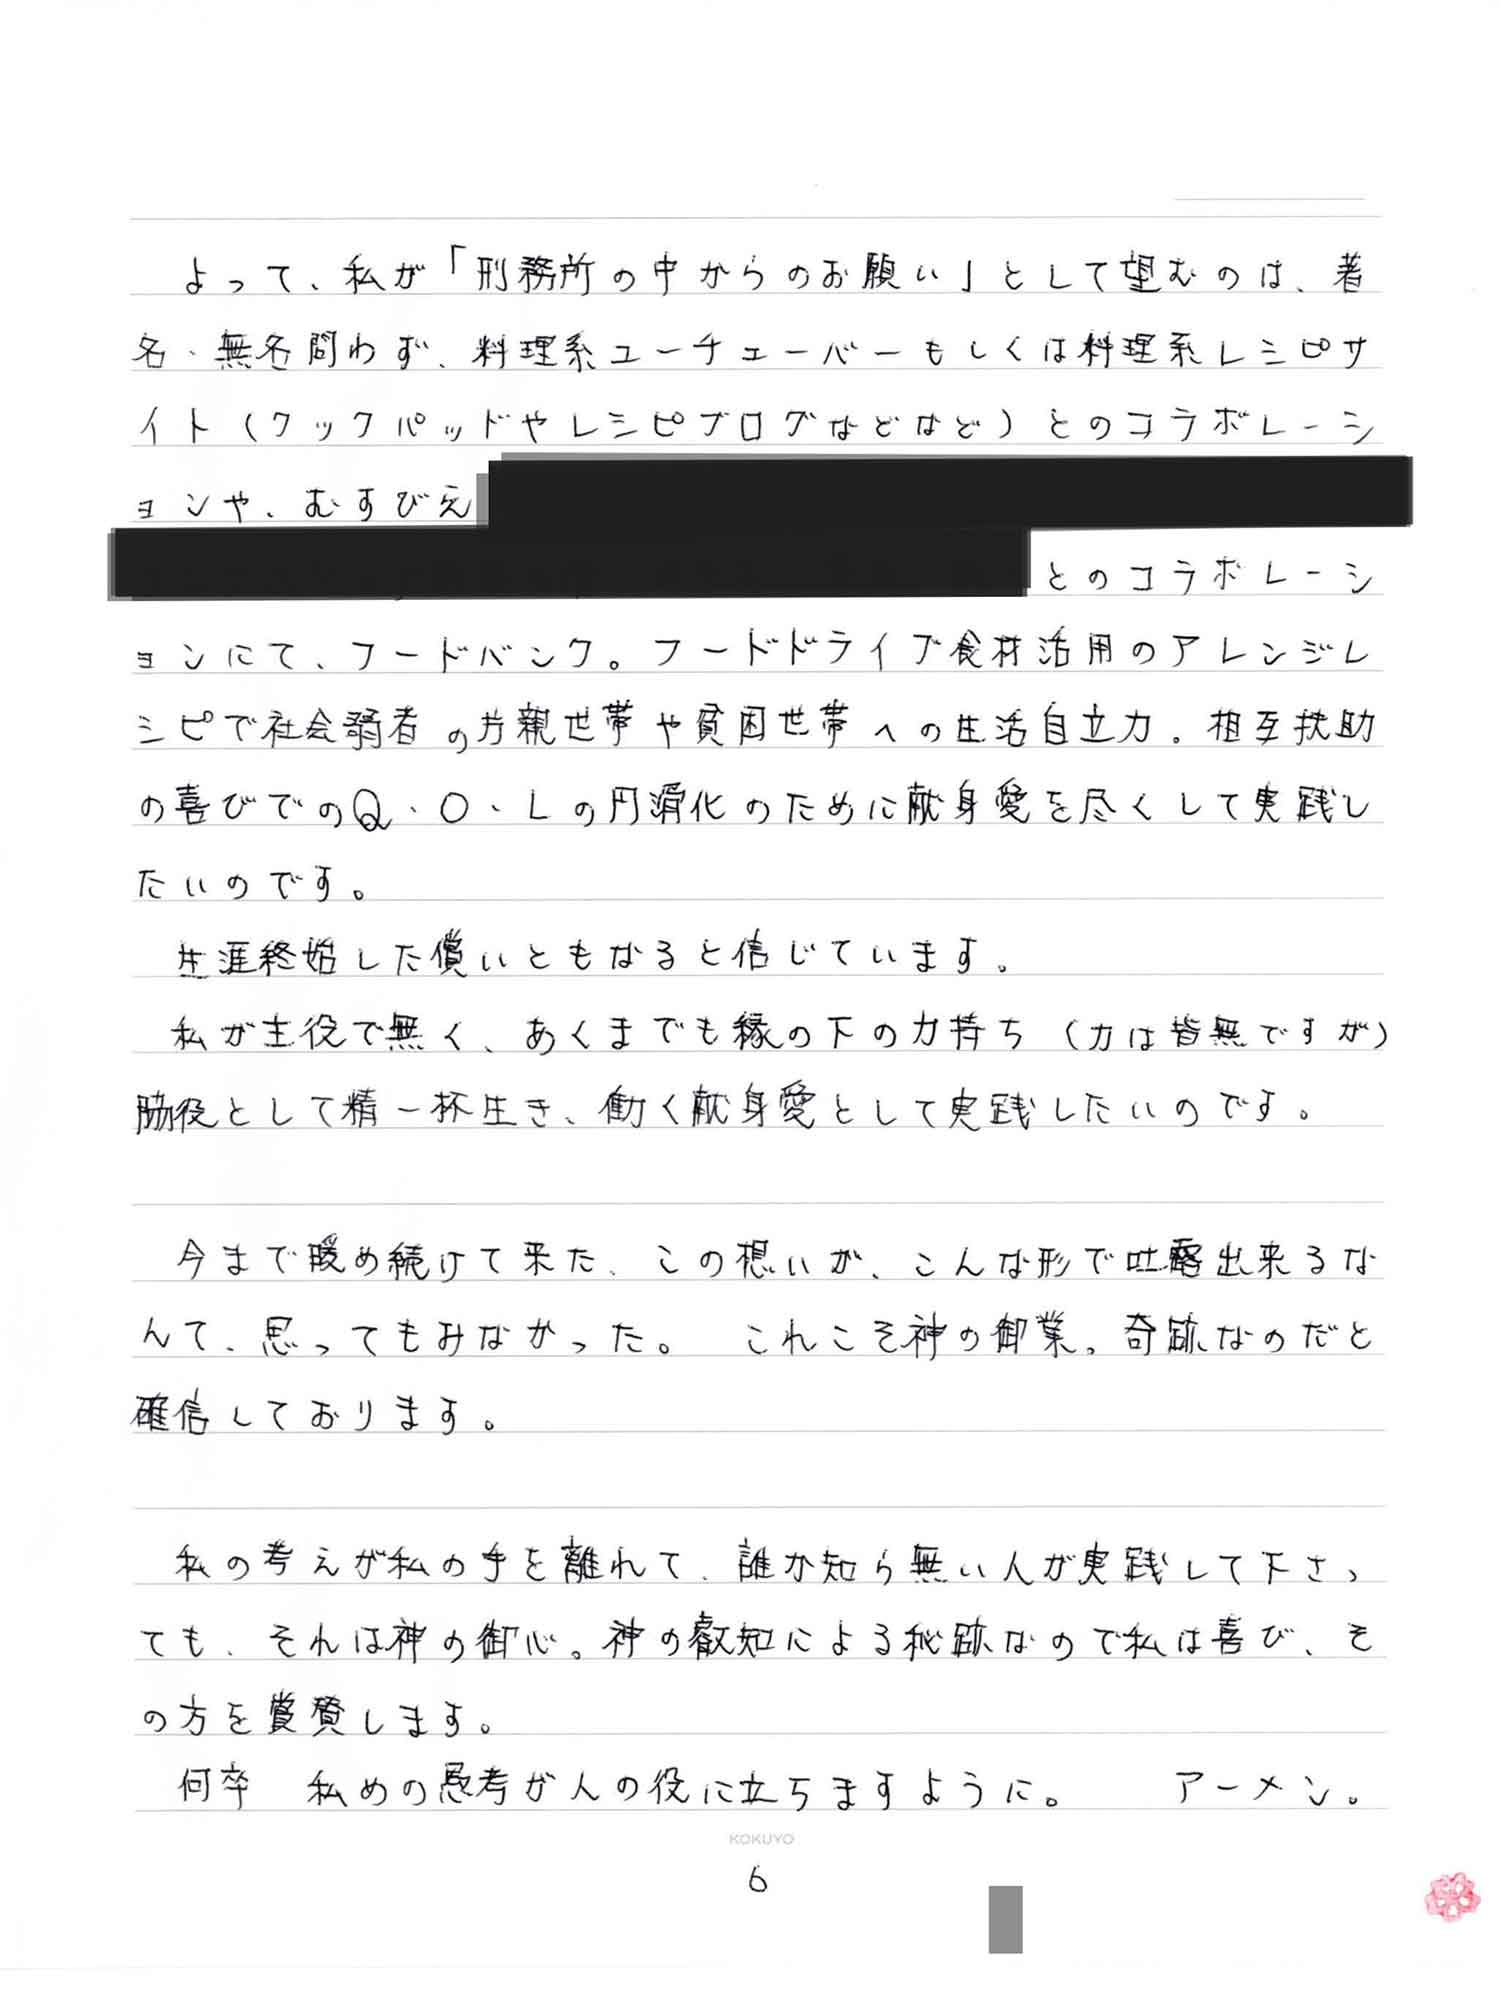 よって、私が「刑務所の中からのお願い」として望むのは、著
名・無名問わず、料理系ユーチューバーもしくは料理系レシピサ
イト(クックパッドやレシピブログなどなど)とのコラボレーシ
ョンや、むすびえ
とのコラボレーシ
ョンにて、フードバンク。フードドライブ食材活用のアレンジレ
シピで社会弱者の片親世帯や貧困世帯への生活自立力。相互扶助
の喜びでのQ・O・Lの円滑化のために献身愛を尽くして実践し
たいのです。
生涯終始した償いともなると信じています。
私が主役で無く、あくまでも縁の下の力持ち(力は皆無ですが)
脇役として精一杯生き、働く献身愛として実践したいのです。
今まで暖め続けて来た、この想いが、こんな形で吐露出来るな
んて、思ってもみなかった。 これこそ神の御業。奇跡なのだと
確信しております。
私の考えが私の手を離れて、誰か知ら無い人が実践して下さっ
ても、それは神の御心。神の叡知による秘跡なので私は喜び、そ
の方を賞賛します。
何卒 私めの愚考が人の役に立ちますように。 アーメン。
KOKUYO
6